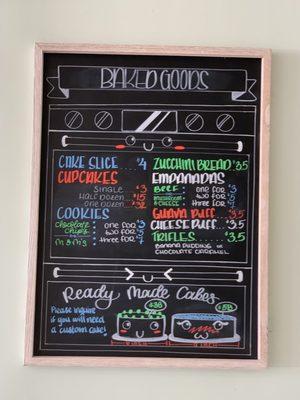 BAKED GOODS
CAKE SLICE 4
CUPCAKES
Single $3
Half Dozen $15
One Dozen $32
COOKIES
Chocolate Chips:
M&M's:
one for
two for
three for
ZUCCHINI BREAD $3.5
EMPANADAS
BEEF:
MUSHROOM & CHEESE:
one for
two for
three for
GUAVA PUFF $3.5
CHEESE PUFF $3.5
TRIFLES $3.5
BANANA PUDDING OR
CHOCOLATE CARAMEL
Ready Made Cakes
Please inquire
if you will need
a custom cake!